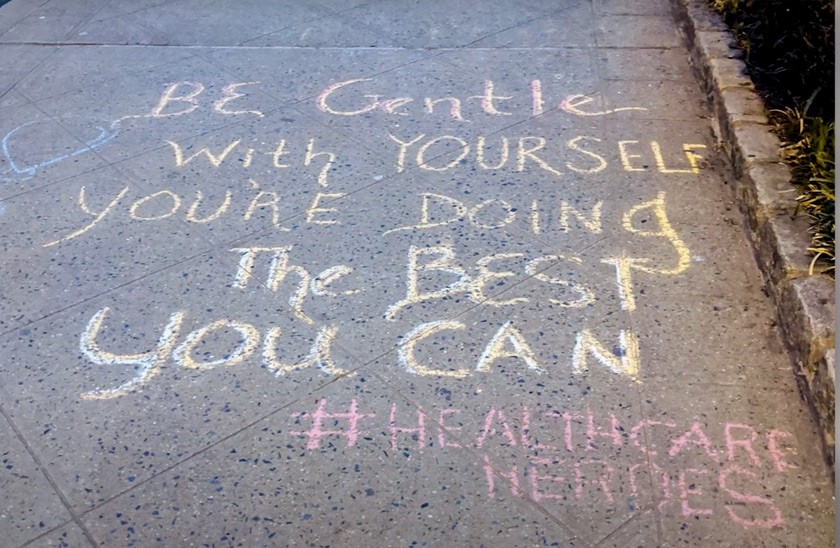 BE Gentle
with YOURSELF
YOU'RE DOINg
The BEST
YOU CAN
#HEALTHCARE
HEROES